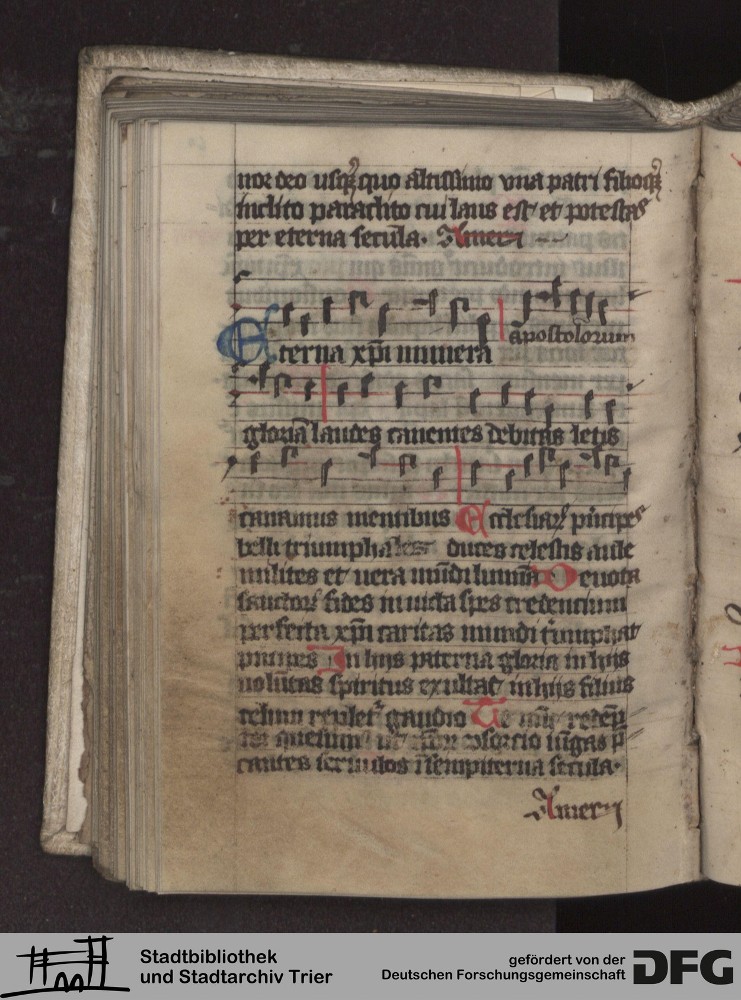 nor deo usq; quo altissimo vna patri filioq;
inclito paraclito cui laus est et potestas
per eterna secula. Amen
apostolorum
Eterna xp̄i munera
gloriā laudes canentes debitas letis
canamus mentibus Ecclesiaꝝ p̄ncipes
belli triumphales duces celestis aule
milites et uera mūdi lumina Deuota
sanctoꝝ fides inuicta spes credencium
perfecta xp̄i caritas mundi t͛umphat
principes In hiis paterna gloria in hiis
uolūtas spiritus exultat in hiis filius
celum repletꝰ gaudio Te nūc redēp
tor quesumus ut ipsoꝝ cōsorcio iūgas p̄
cantes seruulos ī sempiterna secula.
Amen
Stadtbibliothek
und Stadtarchiv Trier
gefördert von der
Deutschen Forschungsgemeinschaft
DFG